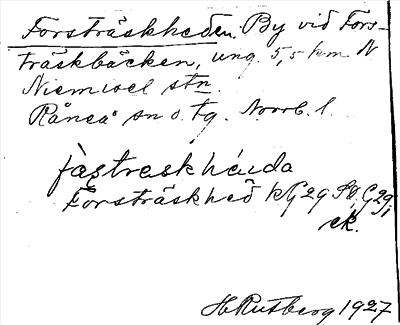 Forsträskheden. By vid Fors-
träskbäcken, ung. 5,5 km N
Niemisel stn
Råneå sn o. tg. Norrb. l.
Forsträskhed k G 29
ek.
H Rutberg 1927